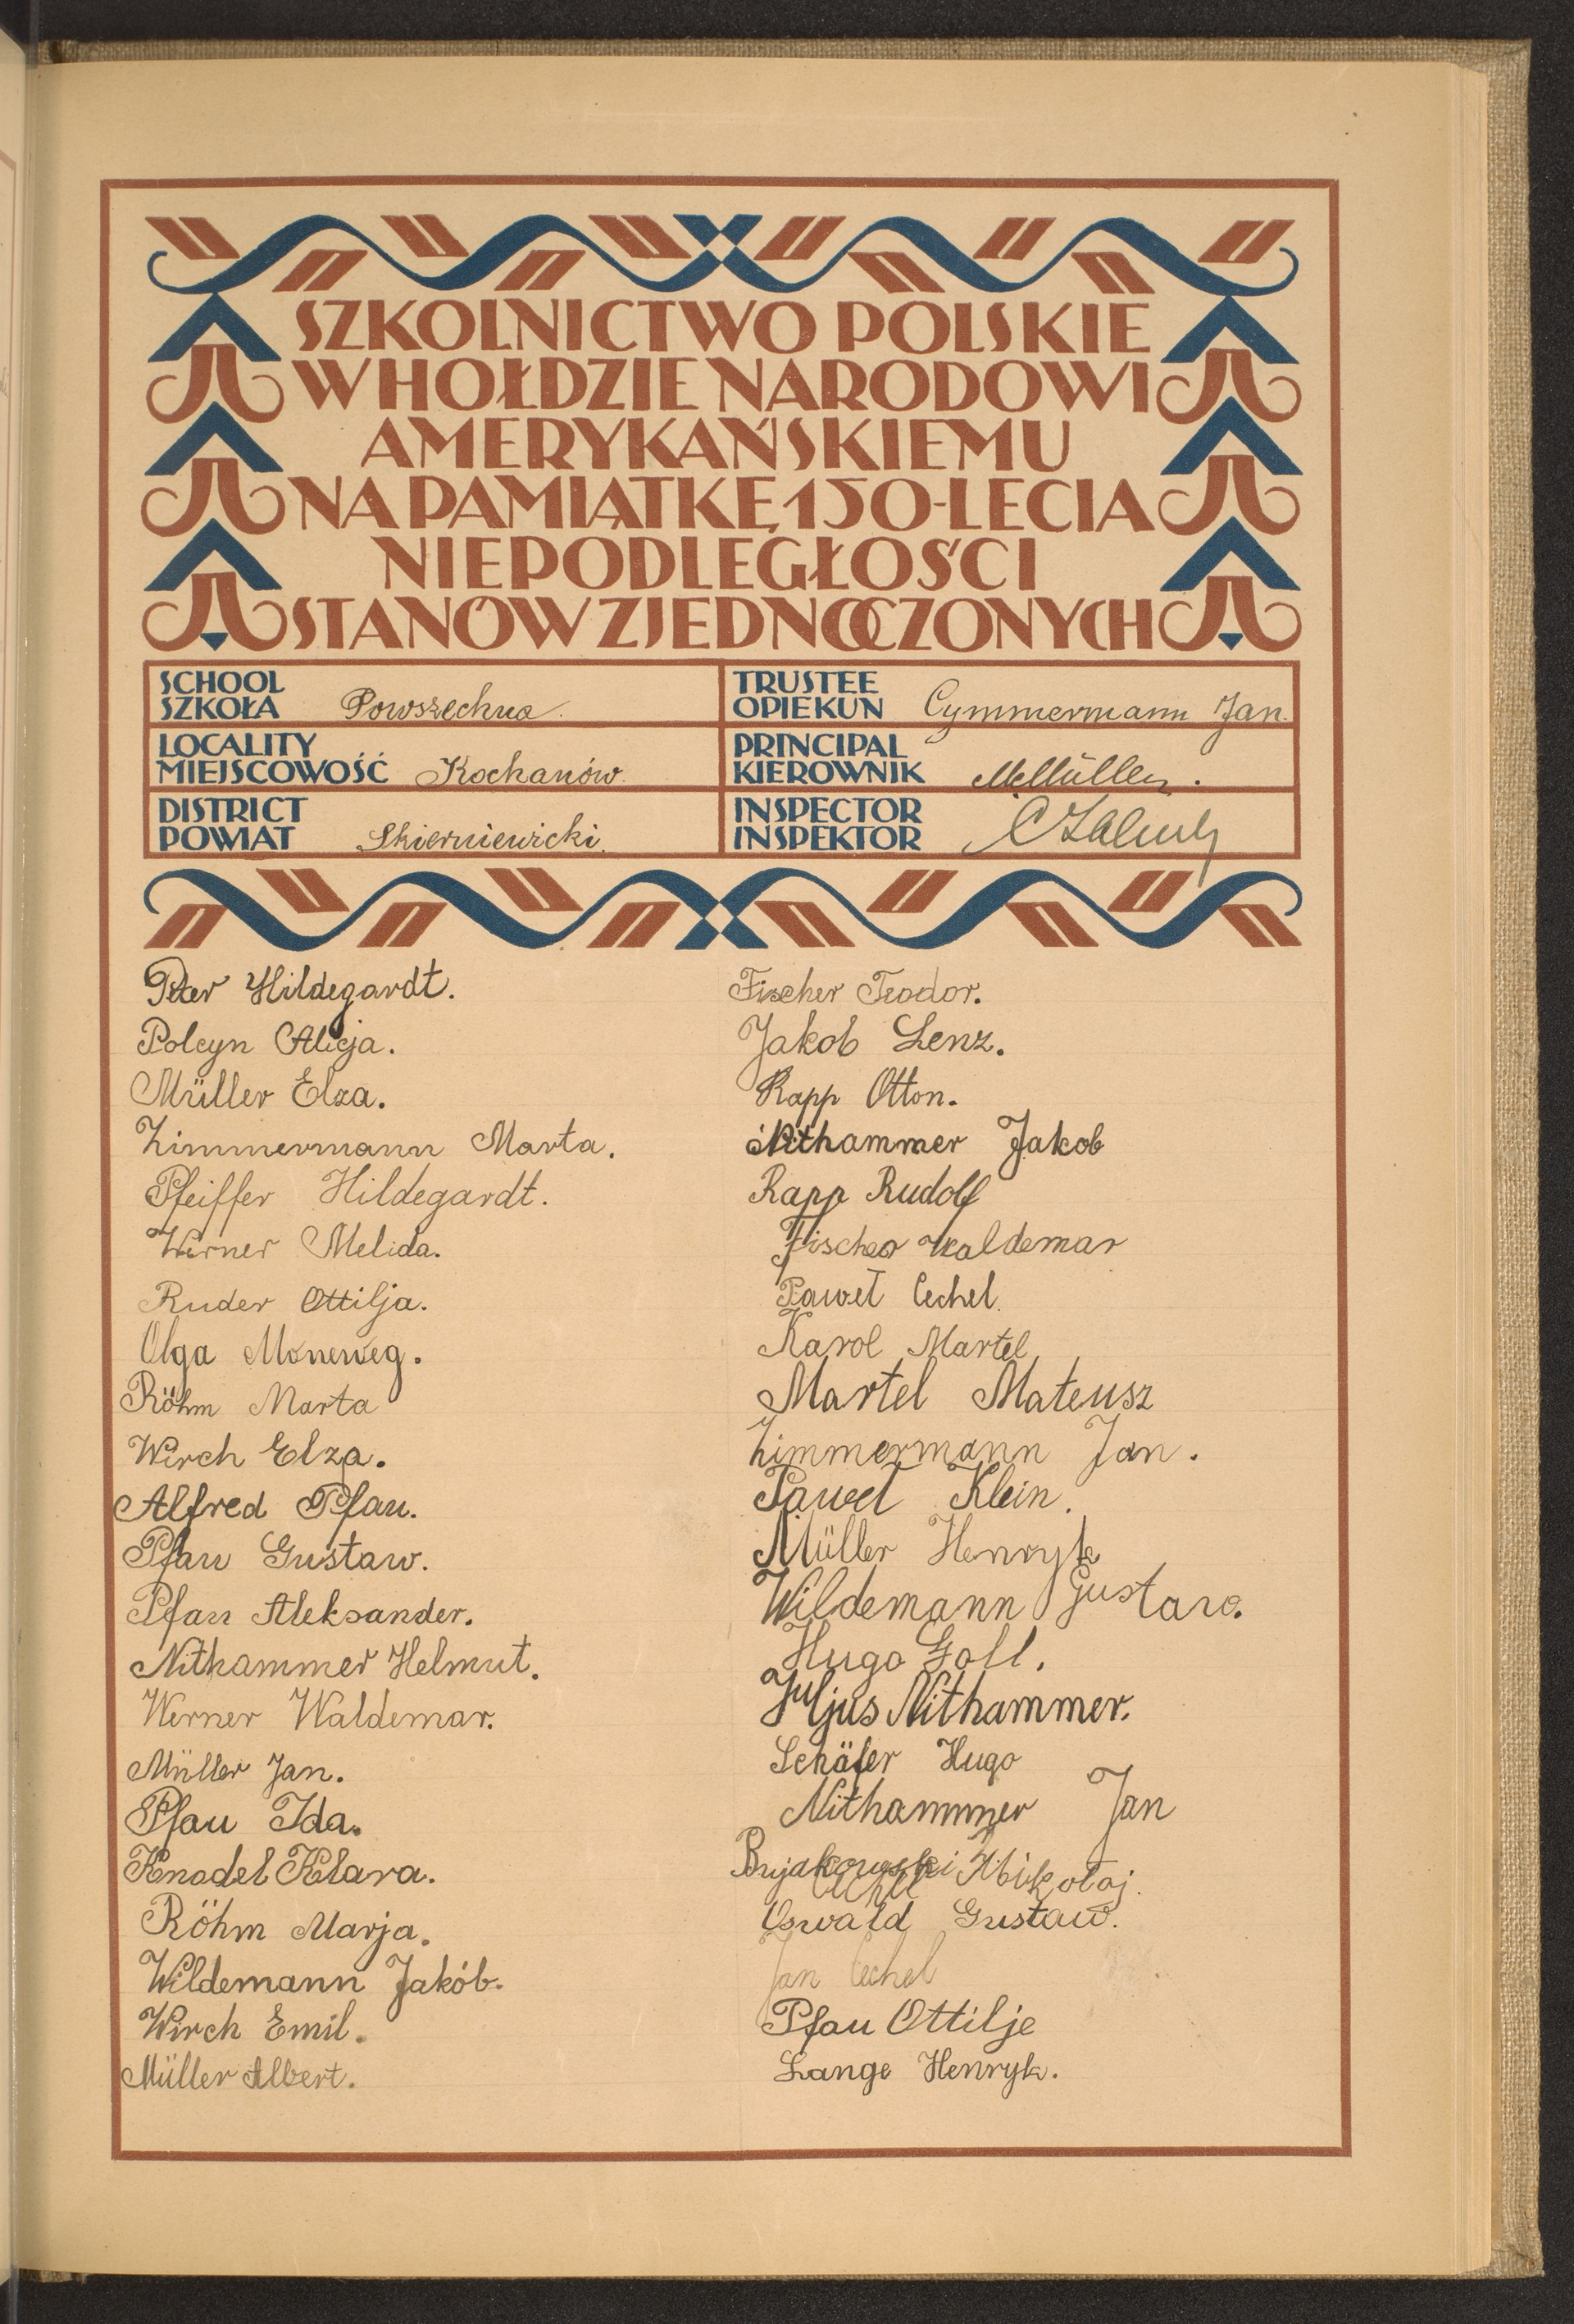 SZKOLNICTWO POLSKIE
W HOŁDZIE NARODOWI
AMERYKAŃSKIEMU
NA PAMIĄTKĘ 150-LECIA
NIEPODLEGŁOŚCI
STANÓW ZJEDNOCZONYCH
SCHOOL
SZKOŁA Powszechna.
TRUSTEE
OPIEKUN Cymmermann Jan.
LOCALITY
MIEJSCOWOŚĆ Kochanów.
PRINCIPAL
KIEROWNIK
DISTRICT
POWIAT Skierniewicki.
INSPECTOR
INSPEKTOR
Peter Hildegardt.
Polcyn Alicja.
Müller Elza.
Zimmermann Marta.
Pfeiffer Hildegardt.
Werner Melida.
Ruder Ottilja.
Olga
Röhm Marta
Wirch Elza.
Alfred Pfau.
Pfau Gustaw.
Pfau Aleksander.
Nithammer Helmut.
Werner Waldemar.
Müller Jan.
Pfau Ida.
Knodel Klara.
Röhm Marja.
Wildemann Jakób.
Wirch Emil.
Müller Albert.
Fischer Teodor.
Jakob Lenz.
Rapp Otton.
Nithammer Jakob
Rapp Rudolf
Fischer Waldemar
Paweł Cechel.
Karol Martel
Martel Mateusz
Zimmermann Jan.
Paweł Klein.
Müller Henryk
Wildemann Gustaw.
Hugo Goll.
Juljus Nithammer.
Schäfer Hugo
Nithammer Jan
Bujakowski Mikołaj.
Oswald Gustaw.
Jan Cechel
Pfau Ottilje
Lange Henryk.